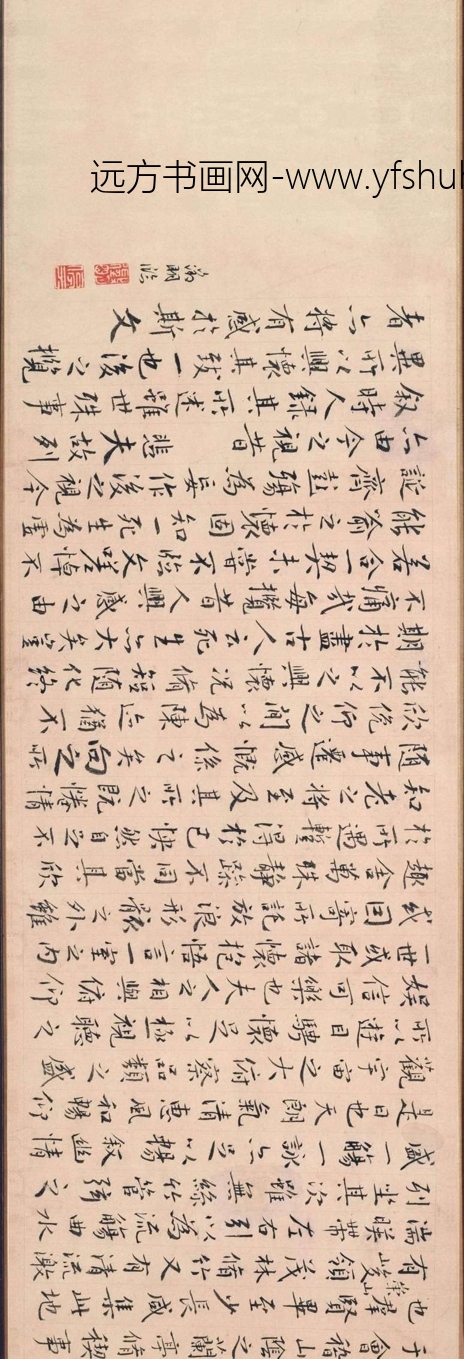 于會稽山陰之蘭亭脩禊事
也羣賢畢至少長咸集此地
有崇山峻領茂林脩竹又有清流激
湍暎帶左右引以為流觴曲水
列坐其次雖無絲竹管弦之
盛一觴一詠亦足以暢叙幽情
是日也天朗氣清惠風和暢仰
觀宇宙之大俯察品類之盛
所以遊目騁懷足以極視聽之
娛信可樂也夫人之相與俯仰
一世或取諸懷抱悟言一室之內
或因寄所託放浪形骸之外雖
趣舍萬殊靜躁不同當其欣
於所遇蹔得於己快然自足不
知老之將至及其所之既惓情
隨事遷感慨係之矣向之所
欣俛仰之間以為陳迹猶不
能不以之興懷況脩短隨化終
期於盡古人云死生亦大矣豈
不痛哉每攬昔人興感之由
若合一契未嘗不臨文嗟悼不
能喻之於懷固知一死生為虛
誕齊彭殤為妄作後之視今
亦由今之視昔悲夫故列
叙時人錄其所述雖世殊事
異所以興懷其致一也後之攬
者亦將有感於斯文
远方书画网-www.yfshuh